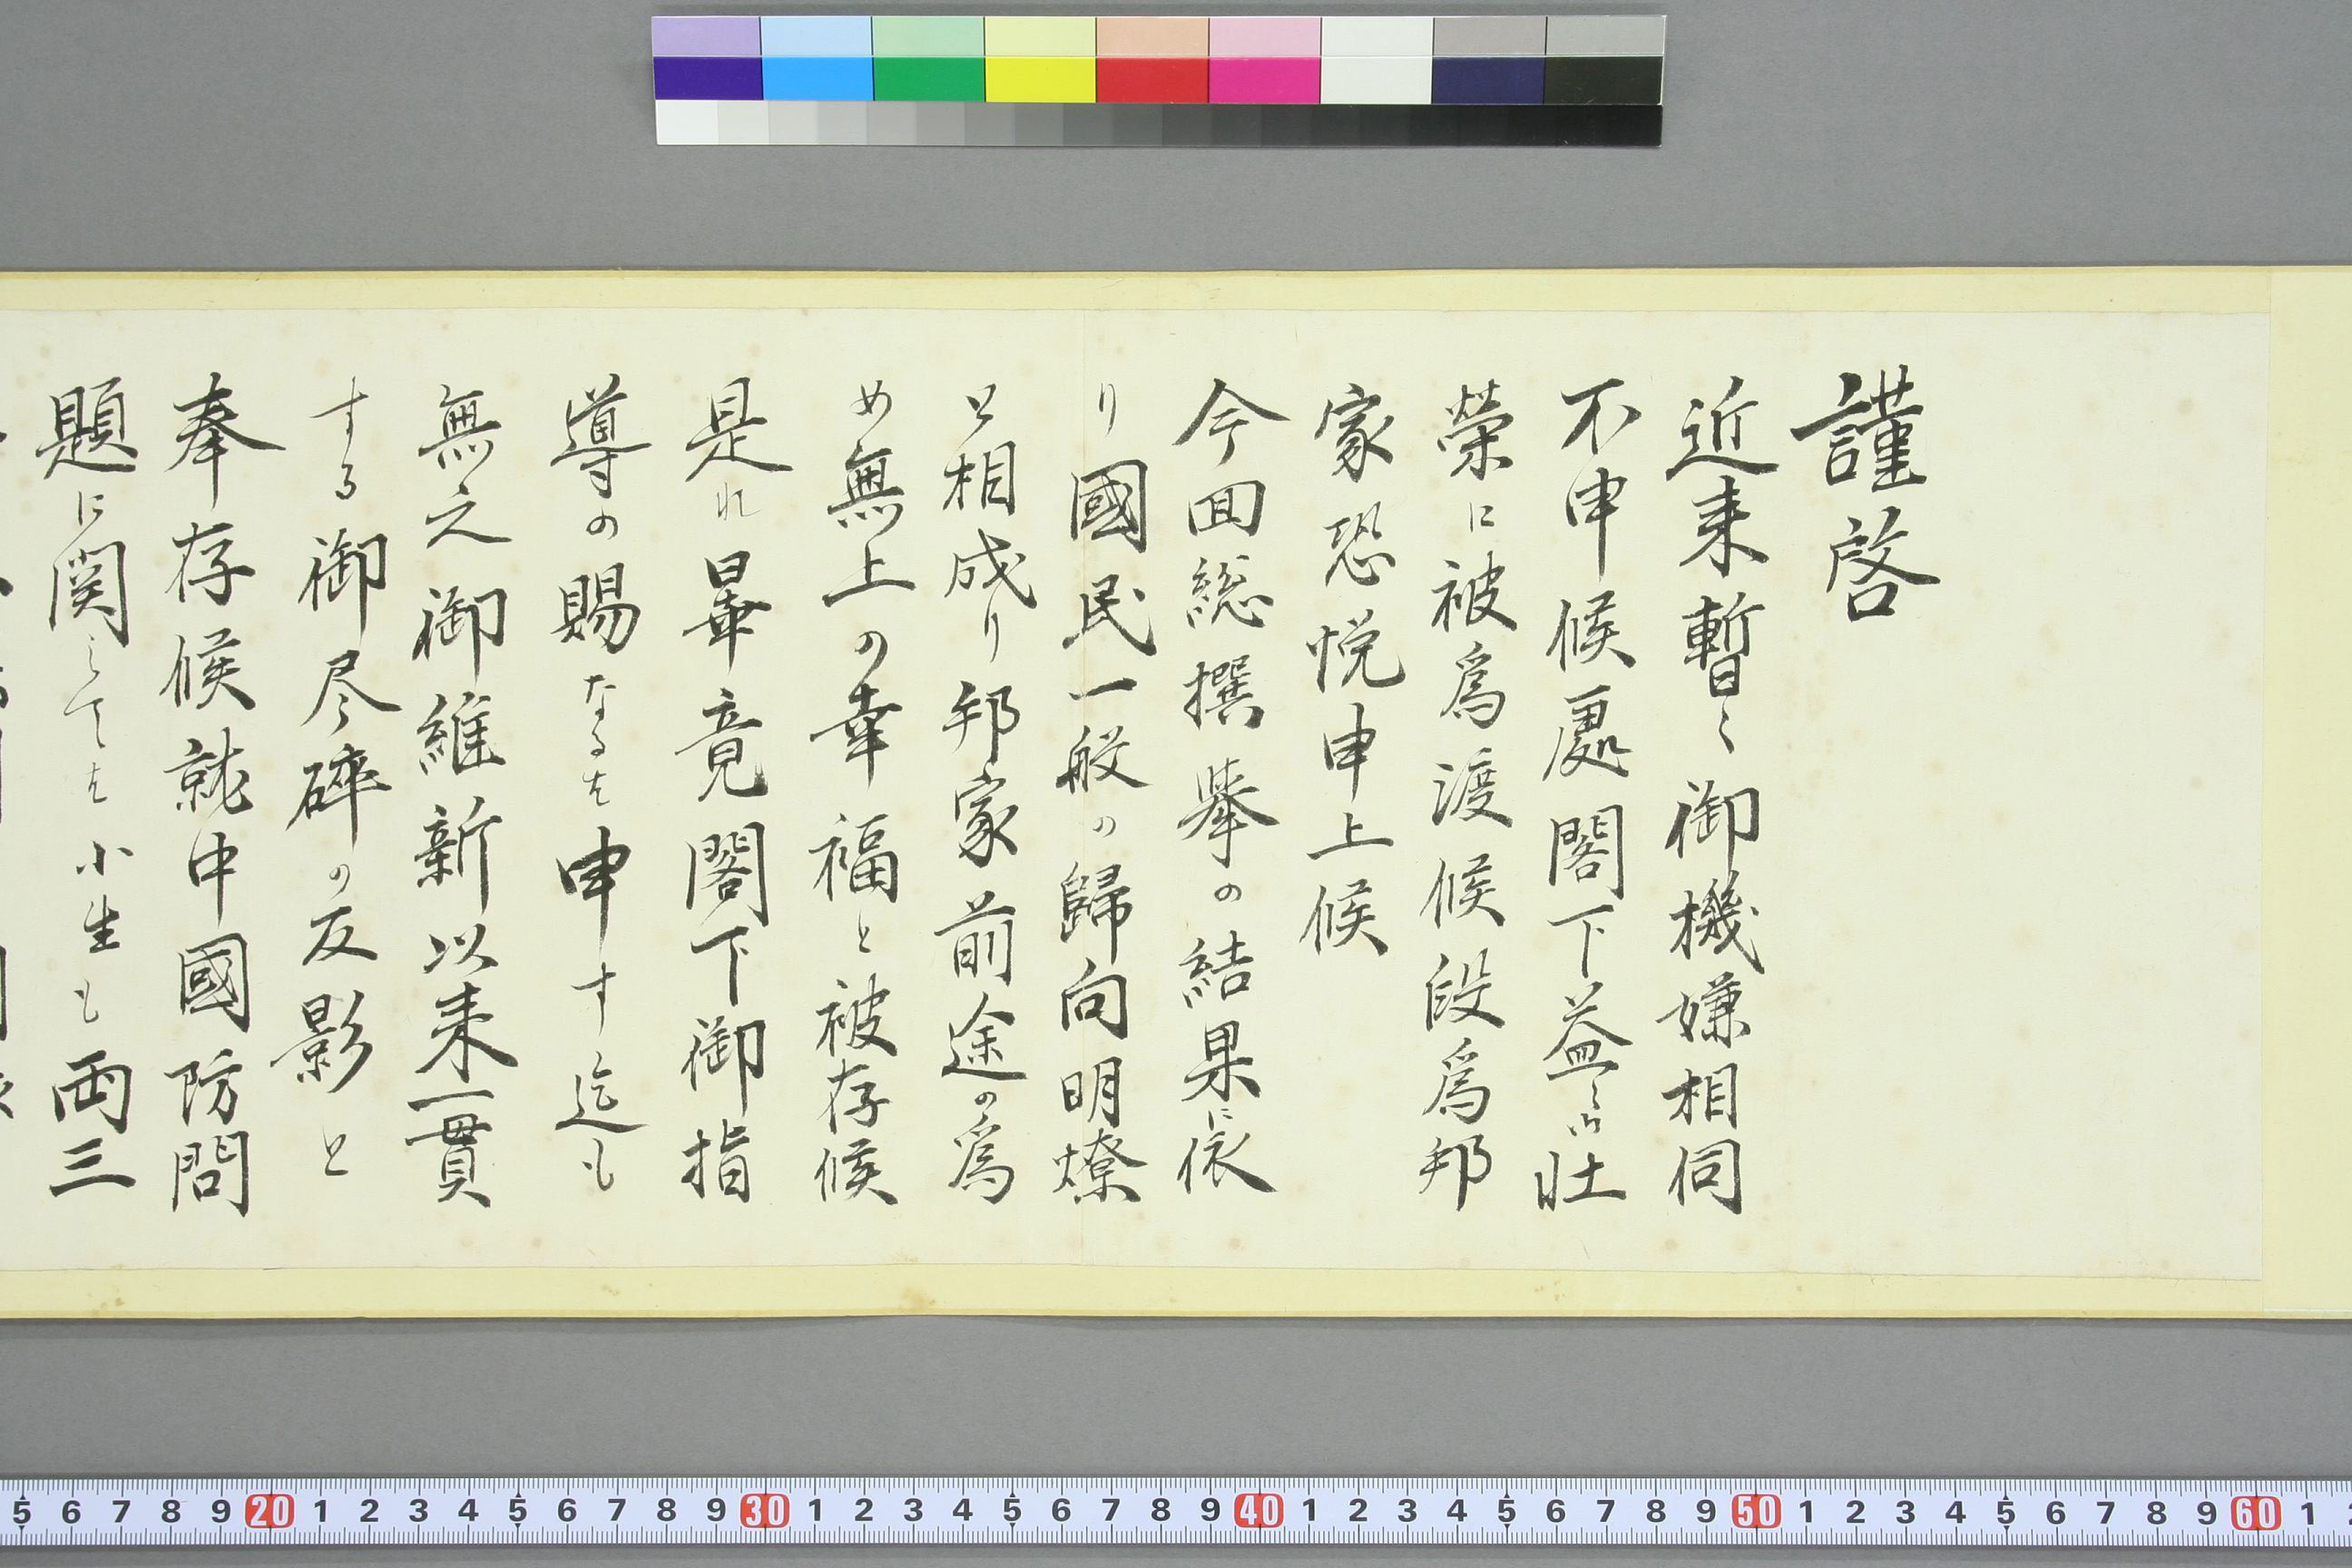 謹啓
近来暫く御機嫌相伺
不申候處閣下益々御壮
榮に被爲渡候段爲邦
家恐悦申上候
今回総撰挙の結果に依
り國民一般の歸向明燎
と相成り邦家前途の爲
め無上の幸福と被存候
是れ畢竟閣下御指
導の賜なるは申す迄も
無之御維新以来一貫
する御尽碎の反影と
奉存候就中國防問
題に関しては小生も両三
5 6 7 8 9 20 1 2 3 4 5 6 7 8 9 30 1 2 3 4 5 6 7 8 9 40 1 2 3 4 5 6 7 8 9 50 1 2 3 4 5 6 7 8 9 60 1